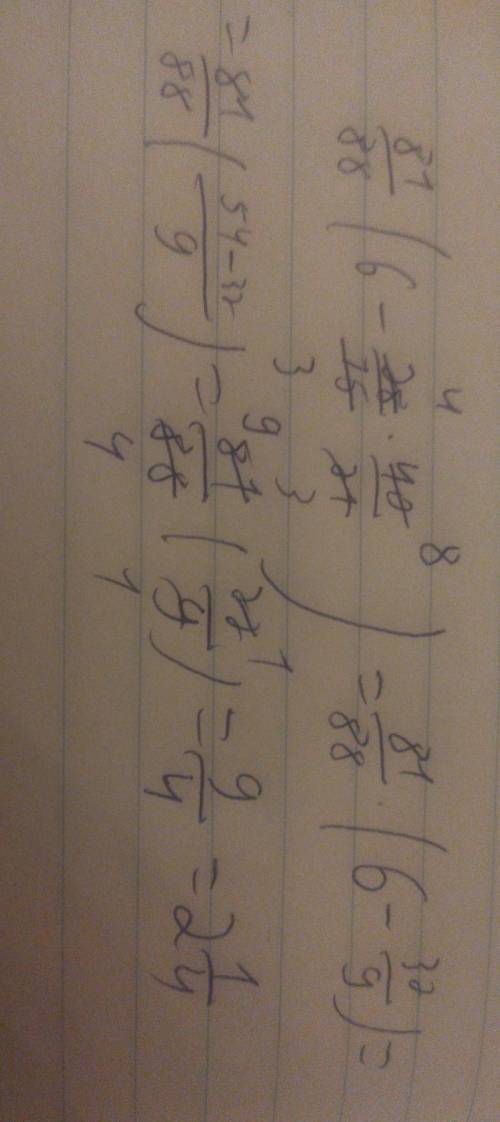 81/88 (6 - 28/15 · 40/21) = 81/88 · (6 - 32/9) =
= 81/88 (54-32/9) = 81/88 (22/9) = 9/4 = 2 1/4